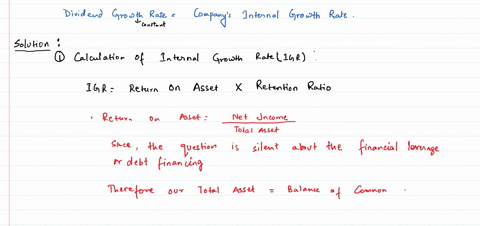 Dividend Growth Rate = Company's Internal Growth Rate.
constant
Solution:
① Calculation of Internal Growth Rate (IGR):
IGR = Return on Asset X Retention Ratio
• Return on Asset: Net Income
Total Asset
Since, the question is silent about the financial leverage
or debt financing
Therefore our Total Asset = Balance of Common